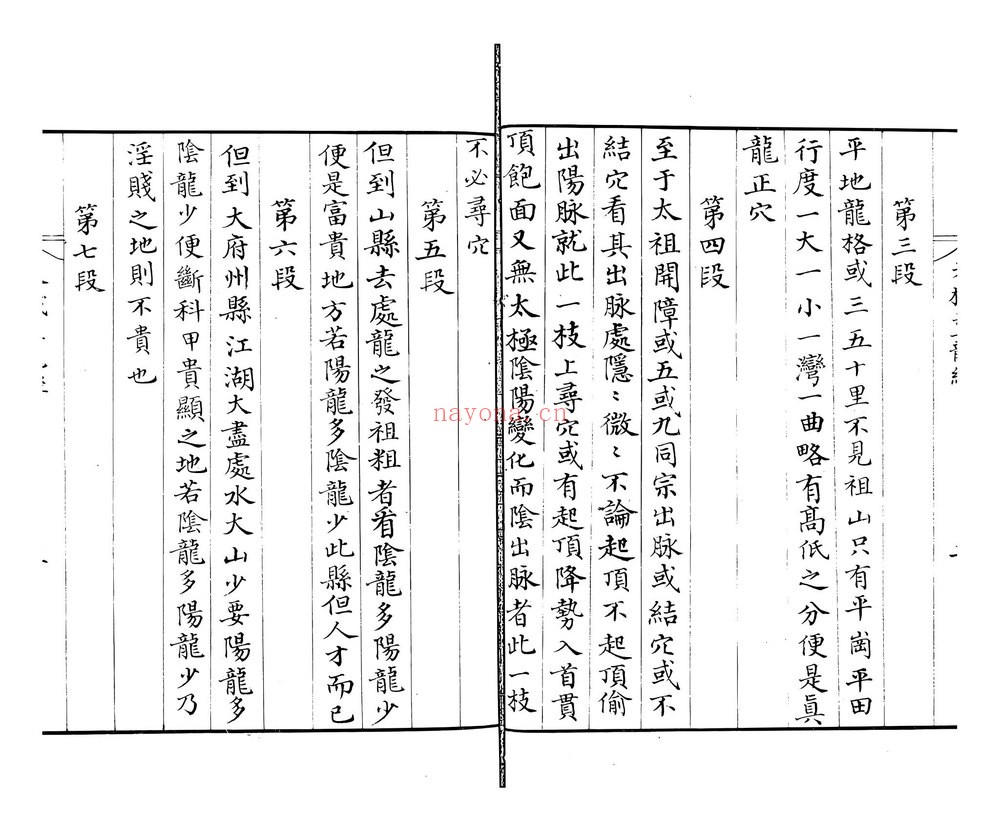 第三段
平地龍格或三五十里不見祖山只有平崗平田
行度一大一小一灣一曲略有高低之分便是眞
龍正穴
第四段
至于太祖開障或五或九同宗出脉或結穴或不
結穴看其出脉處隱〻微〻不論起頂不起頂偷
出陽脉就此一枝上尋穴或有起頂降勢入首貫
頂飽面又無太極陰陽變化而陰出脉者此一枝
不必尋穴
第五段
但到山縣去處龍之發祖粗者看陰龍多陽龍少
便是富貴地方若陽龍多陰龍少此縣但人才而已
第六段
但到大府州縣江湖大盡處水大山少要陽龍多
陰龍少便斷科甲貴顯之地若陰龍多陽龍少乃
淫賤之地則不貴也
第七段
nayona.cn